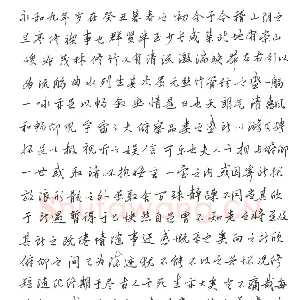 永和九年岁在癸丑暮春之初会于会稽山阴之
兰亭修禊事也群贤毕至少长咸集此地有崇山
峻岭茂林修竹又有清流激湍映带左右引以
为流觞曲水列坐其次虽无丝竹管弦之盛一觞
一咏亦足以畅叙幽情是日也天朗气清惠风
和畅仰观宇宙之大俯察品类之盛所以游目骋
怀足以极视听之娱信可乐也夫人之相与俯仰
一世或取诸怀抱悟言一室之内或因寄所托
放浪形骸之外虽取舍万殊静躁不同当其欣
于所遇暂得于己快然自足曾不知老之将至及
其所之既倦情随事迁感慨系之矣向之所欣
俯仰之间已为陈迹犹不能不以之兴怀况修
短随化终期于尽古人云死生亦大矣岂不痛哉每